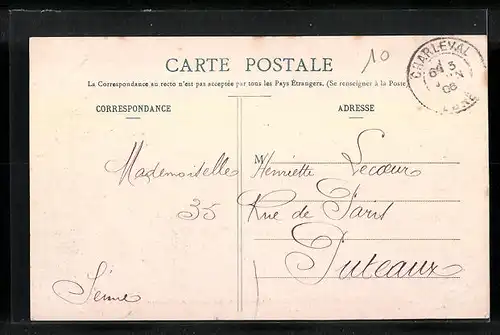 10
CARTE POSTALE
La Correspondance au recto n'est pas acceptée par tous les Pays Étrangers. (Se renseigner à la Poste)
CHARLEVAL
CORRESPONDANCE
ADRESSE
Mademoiselle
M Henriette Lecœur
35 Rue de Paris
Puteaux
Seine